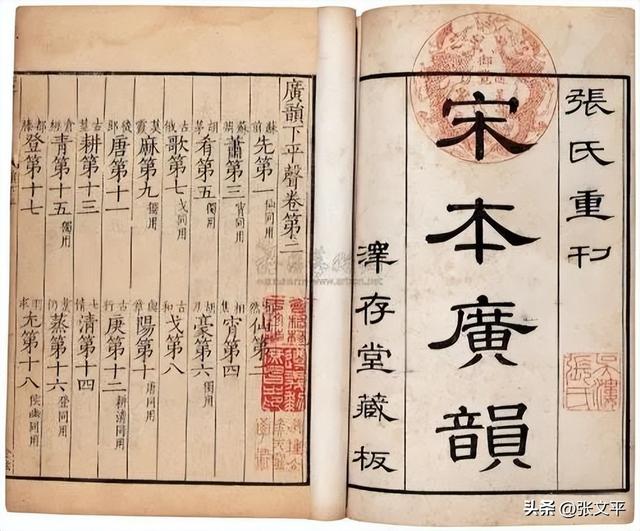 張氏重刊
宋本廣韻
澤存堂藏板
廣韻下平聲卷第二
蘇前先第一仙同用
仙第二
蕭第三宵同用
宵第四
胡茅肴第五獨用
胡豪第六獨用
古俄歌第七戈同用
古戈第八
莫霞麻第九獨用
陽第十唐同用
郎唐第十一
古行庚第十二耕清同用
古莖耕第十三
七情清第十四
青第十五獨用
蒸第十六登同用
都滕登第十七
求尤第十八侯幽同用
头条 @张文平